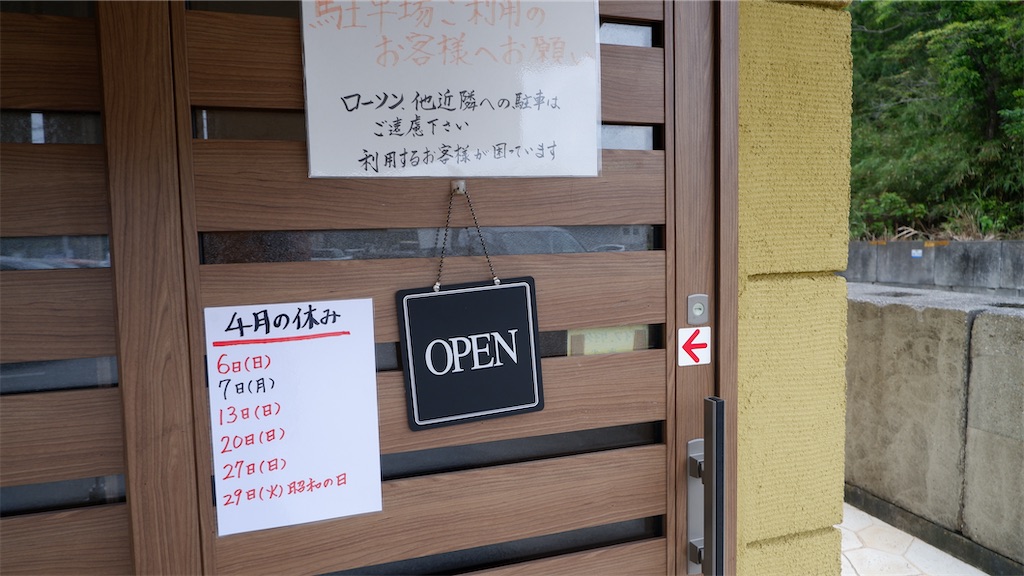 駐車場ご利用の
お客様へお願い
ローソン、他近隣への駐車は
ご遠慮下さい
利用するお客様が困っています
OPEN
4月の休み
6日(日)
7日(月)
13日(日)
20日(日)
27日(日)
29日(火)昭和の日